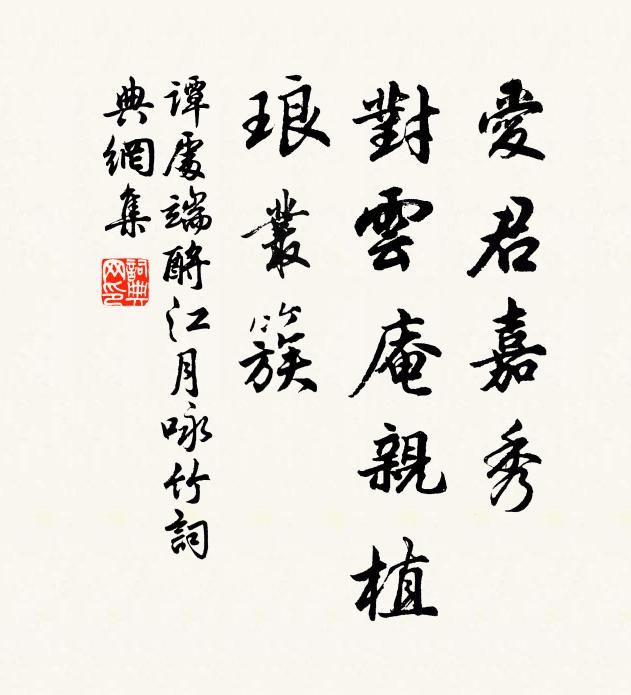 愛君嘉秀
對雲庵親植
琅叢簇
譚處端酹江月咏竹詞
典網集
詞典網印